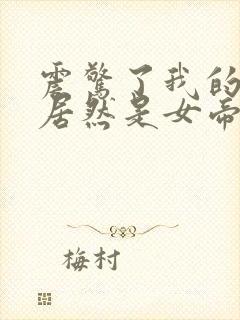 震惊了我的
居然是女帝
梅村